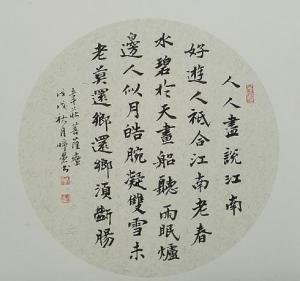 人人盡説江南
好遊人祇合江南老春
水碧於天畫船聽雨眠爐
邊人似月皓腕凝雙雪未
老莫還鄉還鄉須斷腸
韋莊菩薩蠻
戊戌秋月